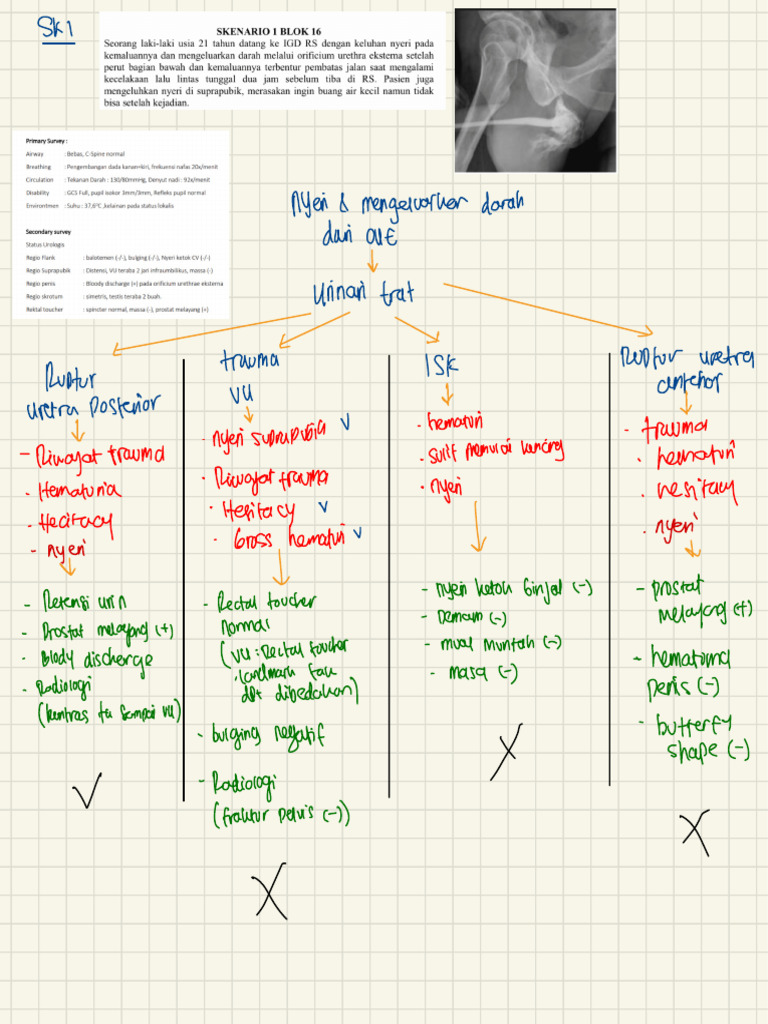 SK 1
SKENARIO 1 BLOK 16
Seorang laki-laki usia 21 tahun datang ke IGD RS dengan keluhan nyeri pada
kemaluannya dan mengeluarkan darah melalui orificium urethra eksterna setelah
perut bagian bawah dan kemaluannya terbentur pembatas jalan saat mengalami
kecelakaan lalu lintas tunggal dua jam sebelum tiba di RS. Pasien juga
mengeluhkan nyeri di suprapubik, merasakan ingin buang air kecil namun tidak
bisa setelah kejadian.
Primary Survey :
Airway : Bebas, C-Spine normal
Breathing : Pengembangan dada kanan=kiri, frekuensi nafas 20x/menit
Circulation : Tekanan Darah : 130/80mmHg, Denyut nadi : 92x/menit
Disability : GCS Full, pupil isokor 3mm/3mm, Refleks pupil normal
Environtmen : Suhu : 37,6°C ,kelainan pada status lokalis
Secondary survey
Status Urologis
Regio Flank : balotemen (-/-), bulging (-/-), Nyeri ketok CV (-/-)
Regio Suprapubik : Distensi, VU teraba 2 jari infraumbilikus, massa (-)
Regio penis : Bloody discharge (+) pada orificium urethrae eksterna
Regio skrotum : simetris, testis teraba 2 buah.
Rektal toucher : spincter normal, massa (-), prostat melayang (+)
Nyeri & mengeluarkan darah
dari OUE
Urinari trat
Ruptur
uretra Posterior
- Riwayat trauma
- Hematuria
- Hecitacy
- nyeri
- Retensi urin
- Prostat melayang (+)
- Blody discharge
- Radiologi
(kontras ta sampai VU)
trauma
VU
- nyeri suprapubik v
- Riwayat trauma
- Hesitacy v
- Gross hematuri v
- Rectal toucher
normal
(VU : Rectal toucher
landmark tak
dpt dibedakan)
- bulging negatif
- Radiologi
(fraktur pelvis (-))
ISK
- hematuri
- sulit memulai kencing
- nyeri
- nyeri ketok ginjal (-)
- Demam (-)
- mual muntah (-)
- masa (-)
Ruptur uretra
anterior
- trauma
- hematuri
- hesitacy
- nyeri
- prostat
melayang (+)
- hematoma
penis (-)
- butterfy
shape (-)